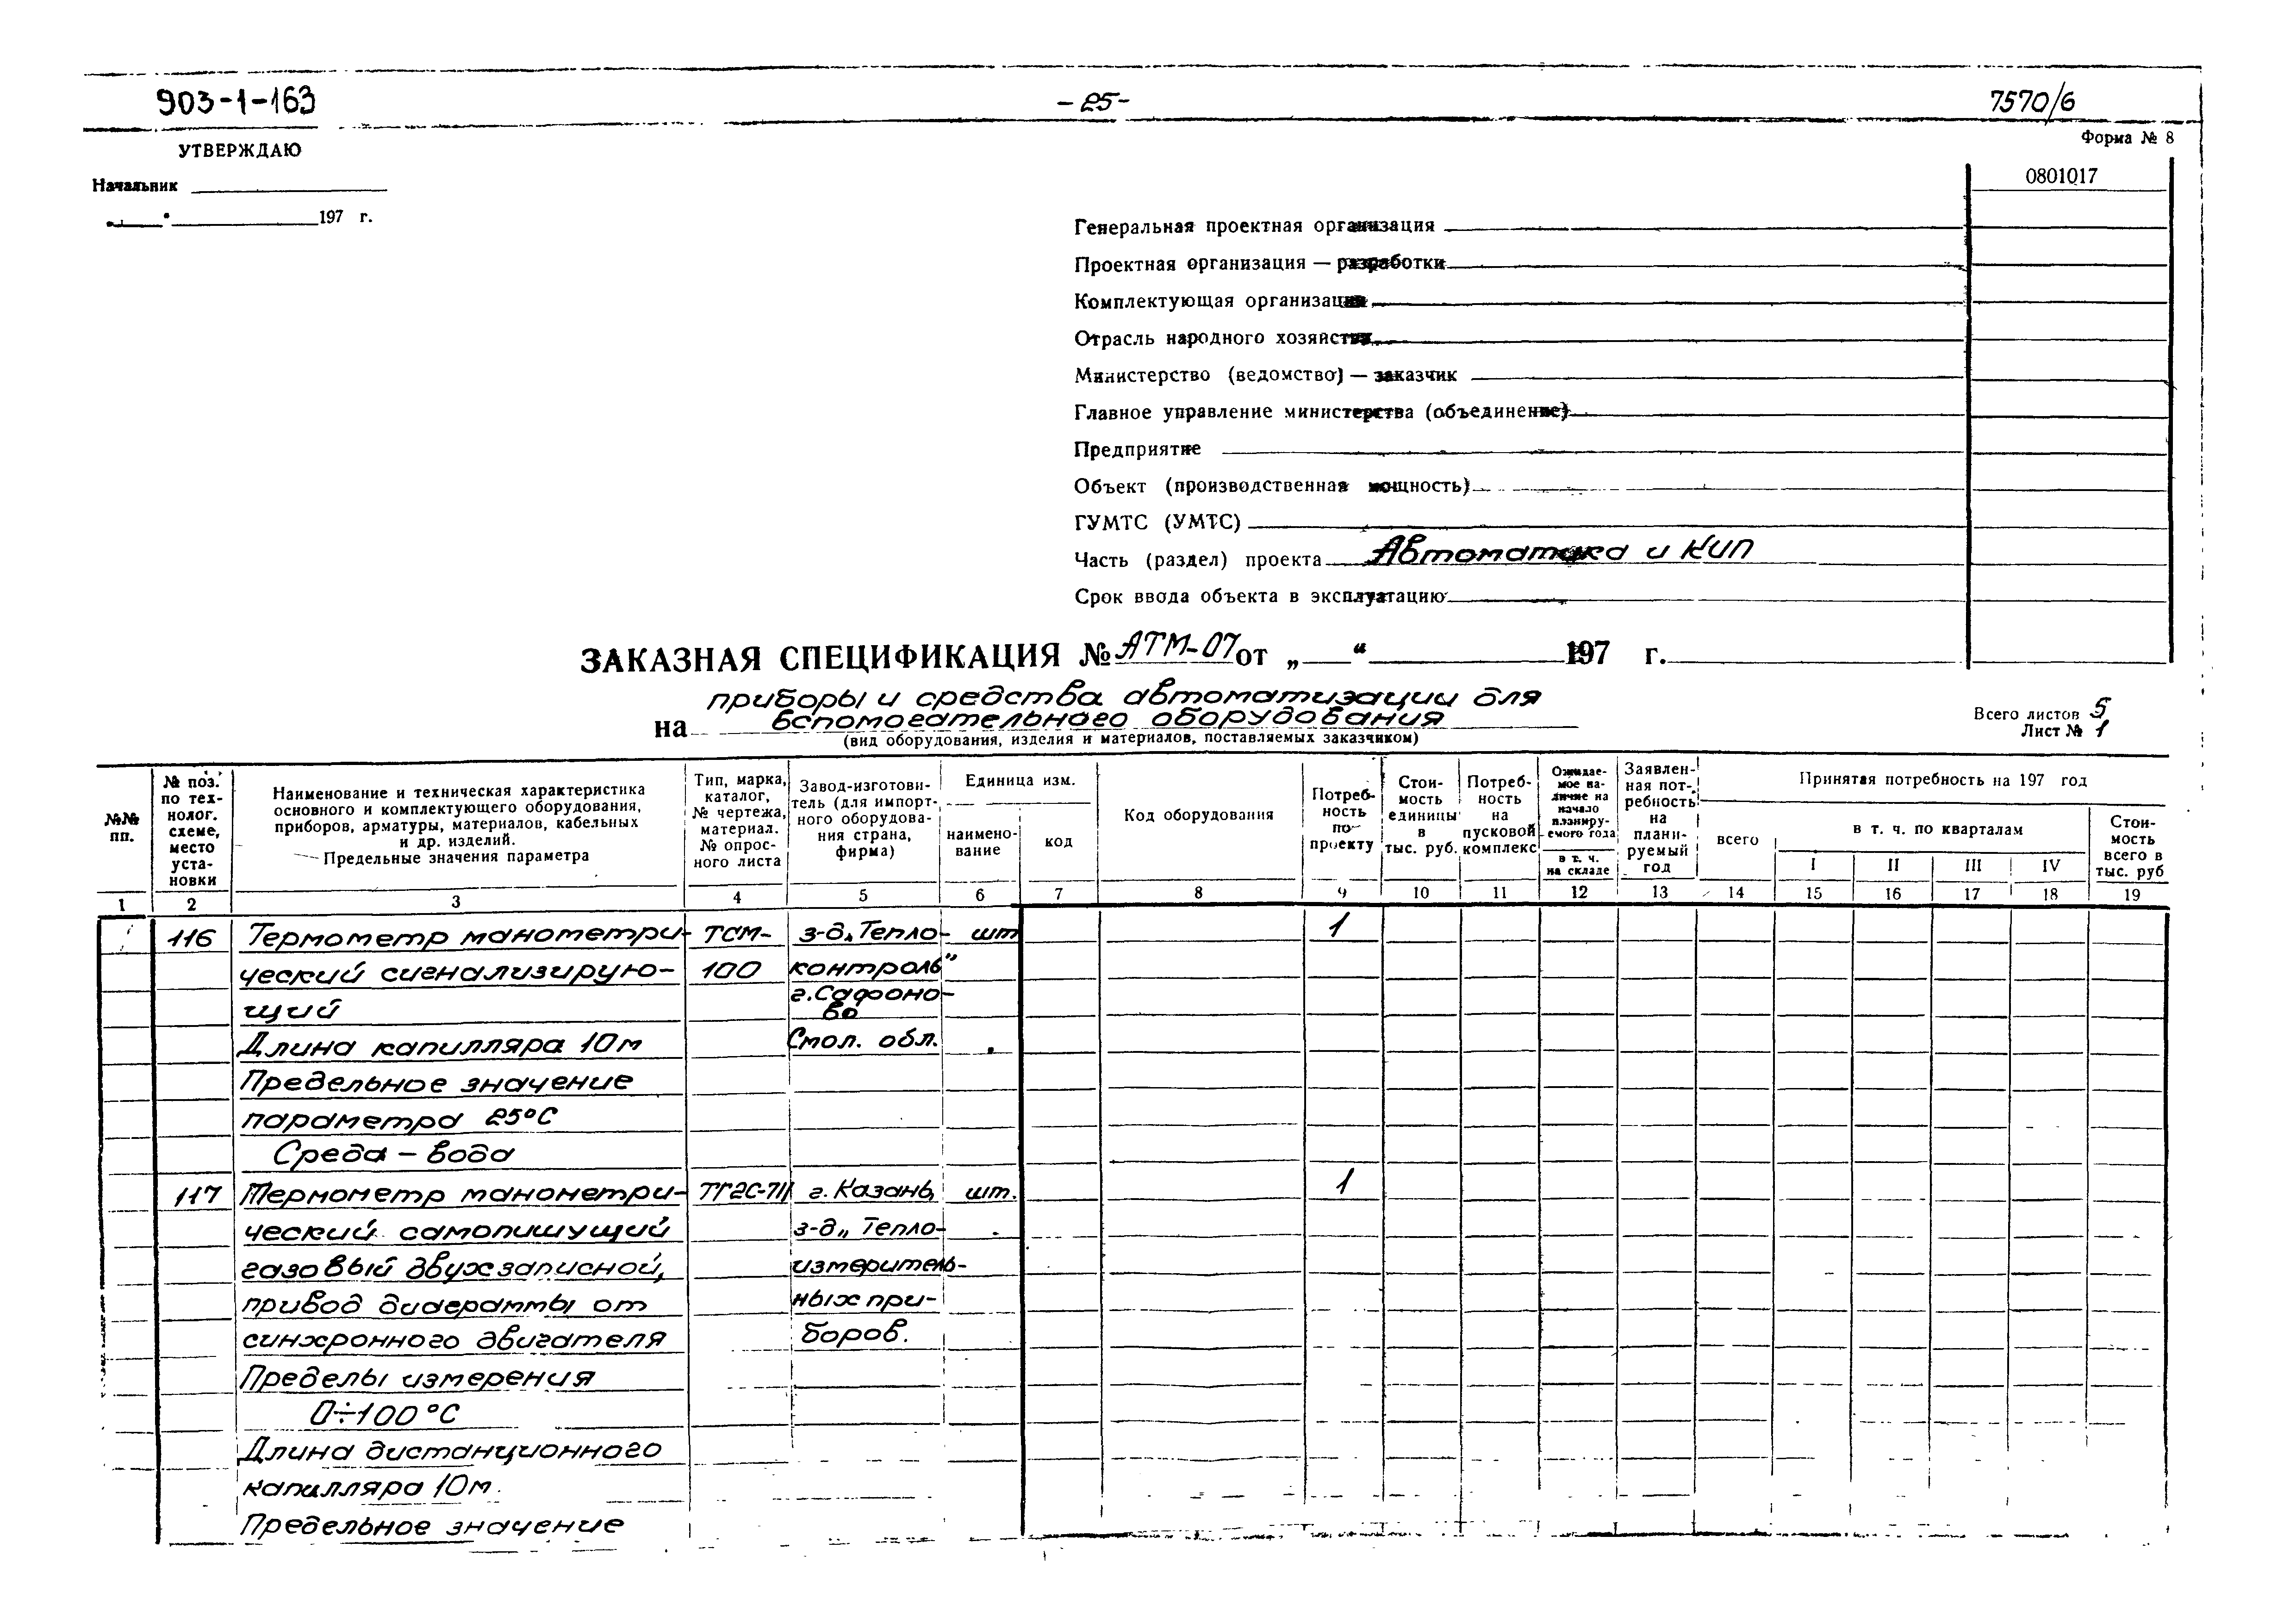 903-1-163
-25-
7570/6
УТВЕРЖДАЮ
Форма № 8
Начальник
0801017
„ “ 197 г.
Генеральная проектная организация
Проектная организация — разработки
Комплектующая организация
Отрасль народного хозяйства
Министерство (ведомство) — заказчик
Главное управление министерства (объединение)
Предприятие
Объект (производственная мощность)
ГУМТС (УМТС)
Часть (раздел) проекта Автоматика и КИП
Срок ввода объекта в эксплуатацию
ЗАКАЗНАЯ СПЕЦИФИКАЦИЯ № АТМ-07 от „ “ 197 г.
приборы и средства автоматизации для
на вспомогательного оборудования
(вид оборудования, изделия и материалов, поставляемых заказчиком)
Всего листов 5
Лист № 1
№№
пп.
№ поз.
по тех-
нолог.
схеме,
место
уста-
новки
Наименование и техническая характеристика
основного и комплектующего оборудования,
приборов, арматуры, материалов, кабельных
и др. изделий.
Предельные значения параметра
Тип, марка,
каталог,
№ чертежа,
материал.
№ опрос-
ного листа
Завод-изготови-
тель (для импорт-
ного оборудова-
ния страна,
фирма)
Единица изм.
наимено-
вание
код
Код оборудования
Потреб-
ность
по
проекту
Стои-
мость
единицы
в
тыс. руб.
Потреб-
ность
на
пусковой
комплекс
Ожидае-
мое на-
личие на
начало
планиру-
емого года
в т. ч.
на складе
Заявлен-
ная пот-
ребность
на
плани-
руемый
год
Принятая потребность на 197 год
всего
в т. ч. по кварталам
I II III IV
Стои-
мость
всего в
тыс. руб
1 2 3 4 5 6 7 8 9 10 11 12 13 14 15 16 17 18 19
116 Термометр манометри- ТСМ- з-д „Тепло- шт 1
ческий сигнализирую- 100 контроль“
щий г. Сафоно-
во
Длина капилляра 10м Смол. обл.
Предельное значение
параметра 25°С
Среда — вода
117 Термометр манометри- ТГ2С-711 г. Казань, шт. 1
ческий самопишущий з-д „Тепло-
газовый двухзаписной, измеритель-
привод диаграммы от ных при-
синхронного двигателя боров.
Пределы измерения
0÷100°С
Длина дистанционного
капилляра 10м.
Предельное значение